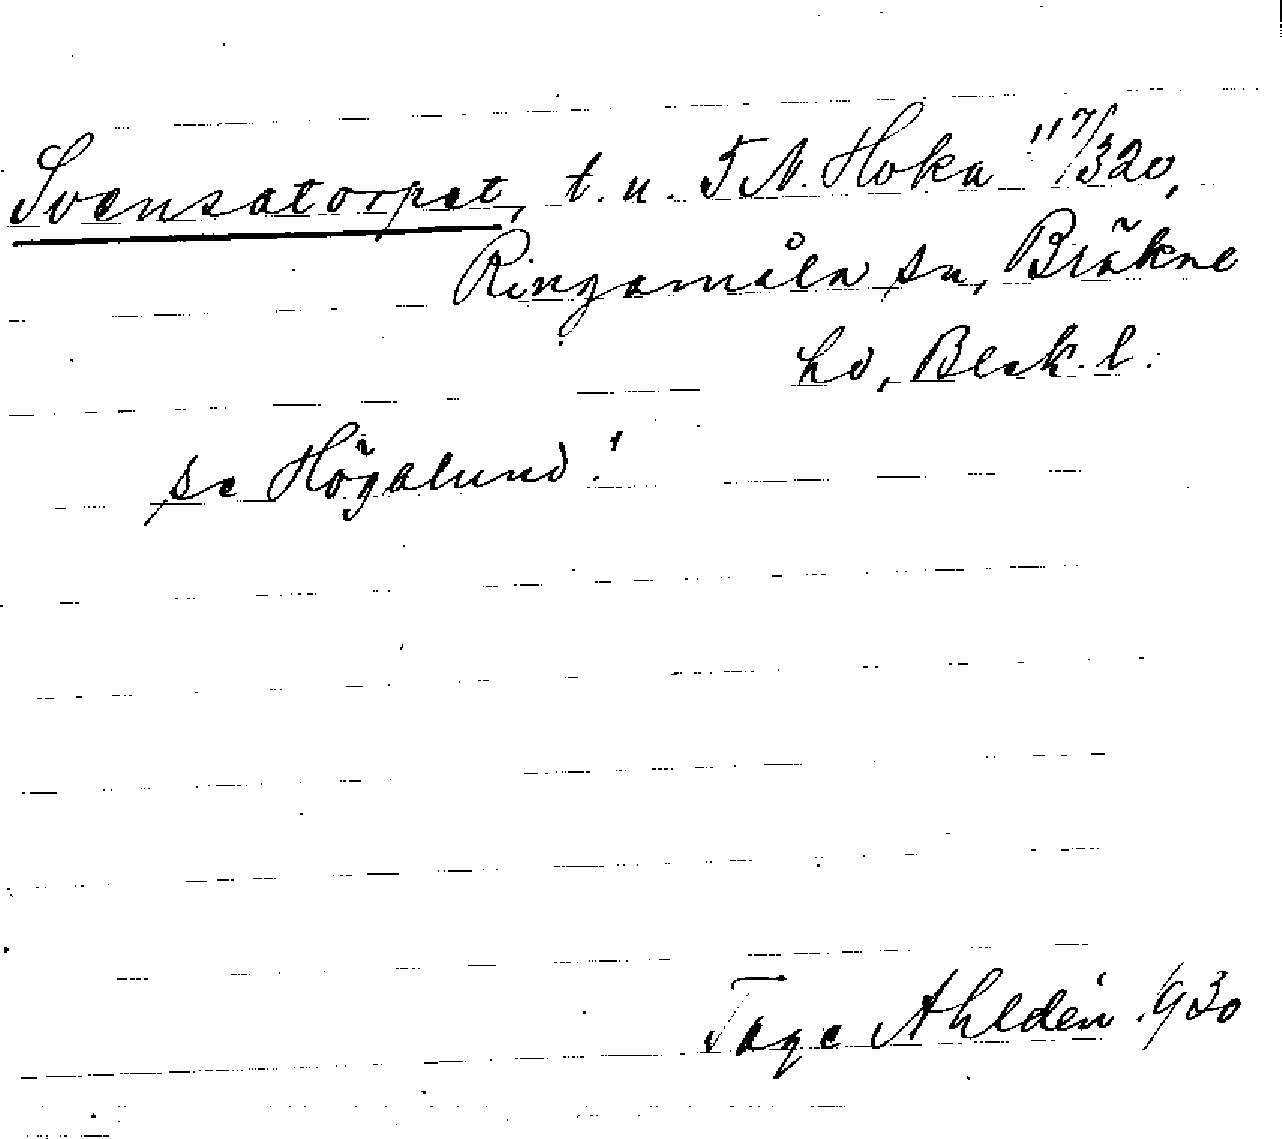 Svensatorpet, t. u. T N. Hoka 117/320,
Ringamåla sn, Bräkne
hd, Blek. l.
se Högalund!
Tage Ahldén 1930